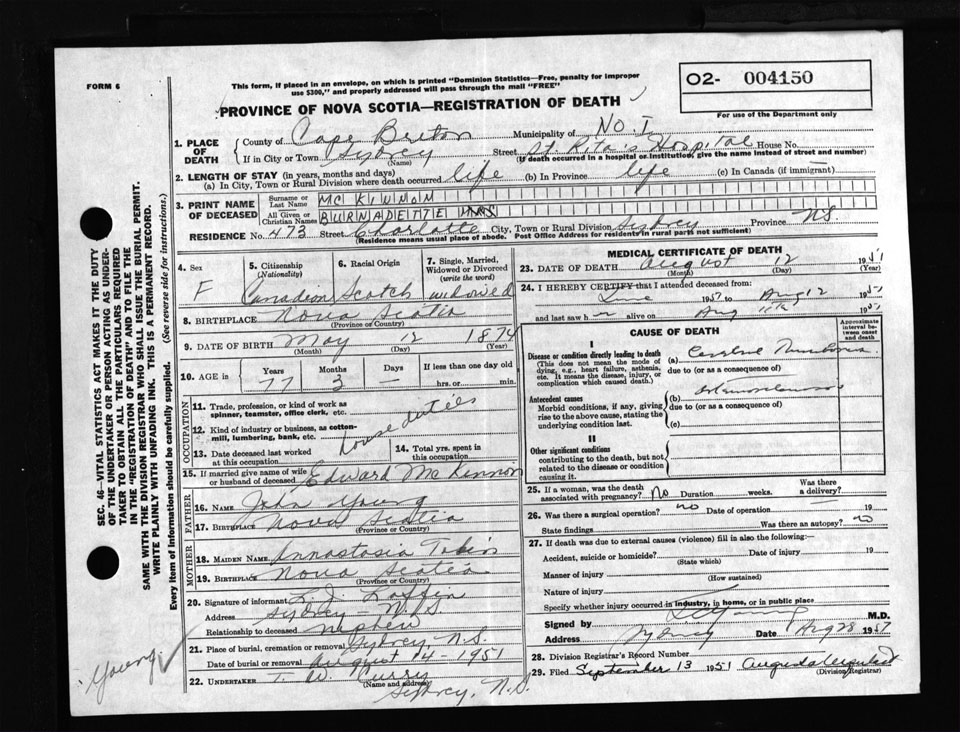 FORM 6
This form, if placed in an envelope, on which is printed "Dominion Statistics—Free, penalty for improper
use $300," and properly addressed will pass through the mail "FREE"
O2- 004150
For use of the Department only
PROVINCE OF NOVA SCOTIA—REGISTRATION OF DEATH
1. PLACE OF DEATH
County of Cape Breton Municipality of No I.
If in City or Town Sydney Street St. Rita's Hospital House No.
(Name) (If death occurred in a hospital or institution, give the name instead of street and number)
2. LENGTH OF STAY (in years, months and days)
(a) In City, Town or Rural Division where death occurred life (b) In Province life (c) In Canada (if immigrant)
3. PRINT NAME OF DECEASED
Surname or Last Name MC KINNON
All Given or Christian Names BURNADETTE MRS
RESIDENCE No. 473 Street Charlotte City, Town or Rural Division Sydney Province N.S.
(Residence means usual place of abode. Post Office Address for residents in rural parts not sufficient)
4. Sex F
5. Citizenship (Nationality) Canadian
6. Racial Origin Scotch
7. Single, Married, Widowed or Divorced (write the word) widowed
8. BIRTHPLACE Nova Scotia
(Province or Country)
9. DATE OF BIRTH May 12 1874
(Month) (Day) (Year)
10. AGE in Years Months Days If less than one day old
77 3 — hrs. or min.
OCCUPATION
11. Trade, profession, or kind of work as spinner, teamster, office clerk, etc.
house duties
12. Kind of industry or business, as cotton-mill, lumbering, bank, etc.
13. Date deceased last worked at this occupation
14. Total yrs. spent in this occupation
15. If married give name of wife or husband of deceased Edward McKinnon
FATHER
16. NAME John Young
17. BIRTHPLACE Nova Scotia
(Province or Country)
MOTHER
18. MAIDEN NAME Annastasia Tobin
19. BIRTHPLACE Nova Scotia
(Province or Country)
20. Signature of informant L. J. Laffin
Address Sydney - N.S.
Relationship to deceased nephew
21. Place of burial, cremation or removal Sydney N.S.
Date of burial or removal August 14-1951
22. UNDERTAKER T. W. Curry
(Name and address)
Sydney, N.S.
MEDICAL CERTIFICATE OF DEATH
23. DATE OF DEATH August 12 1951
(Month) (Day) (Year)
24. I HEREBY CERTIFY that I attended deceased from:
June 1951 to Aug 12 1951
and last saw her alive on Aug 1951
CAUSE OF DEATH
Approximate interval between onset and death
I
Disease or condition directly leading to death
(This does not mean the mode of dying, e.g., heart failure, asthenia, etc. It means the disease, injury, or complication which caused death.)
(a) Cerebral Thrombosis
due to (or as a consequence of)
Antecedent causes
Morbid conditions, if any, giving rise to the above cause, stating the underlying condition last.
(b)
due to (or as a consequence of)
(c)
II
Other significant conditions
contributing to the death, but not related to the disease or condition causing it.
25. If a woman, was the death associated with pregnancy? No Duration weeks. Was there a delivery?
26. Was there a surgical operation? no Date of operation 19
State findings Was there an autopsy? no
27. If death was due to external causes (violence) fill in also the following:—
Accident, suicide or homicide? Date of injury 19
(State which)
Manner of injury
(How sustained)
Nature of injury
Specify whether injury occurred in industry, in home, or in public place
Signed by Young M.D.
Address Sydney Date Aug 28 1951
28. Division Registrar's Record No.
29. Filed September 13 1951
(Division Registrar)
SEC. 46—VITAL STATISTICS ACT MAKES IT THE DUTY
OF THE UNDERTAKER OR PERSON ACTING AS UNDER-
TAKER TO OBTAIN ALL THE PARTICULARS REQUIRED
IN THE "REGISTRATION OF DEATH" AND TO FILE THE
SAME WITH THE DIVISION REGISTRAR WHO SHALL ISSUE THE BURIAL PERMIT.
WRITE PLAINLY WITH UNFADING INK. THIS IS A PERMANENT RECORD.
Every item of information should be carefully supplied. (See reverse side for instructions.)
Young